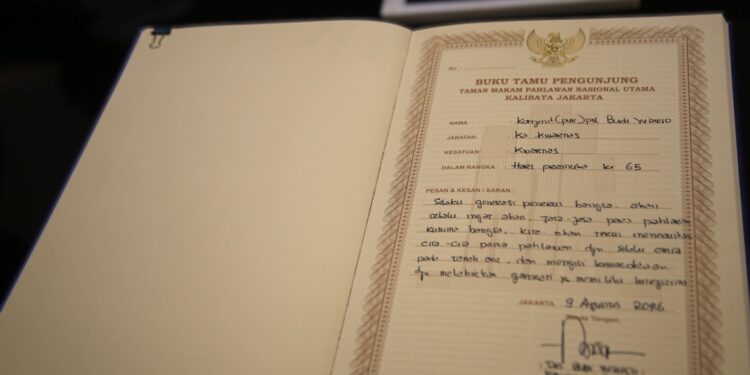 No.
BUKU TAMU PENGUNJUNG
TAMAN MAKAM PAHLAWAN NASIONAL UTAMA
KALIBATA JAKARTA
NAMA : Komjend (pur) pol Budi Waseso
JABATAN : Ka Kwarnas
KESATUAN : Kwarnas
DALAM RANGKA : Hari pramuka ke 65
PESAN & KESAN / SARAN :
Selaku generasi penerus bangsa, akan
selalu ingat akan jasa-jasa para pahlawan
kusuma bangsa. kita akan terus meneruskan
cita-cita para pahlawan dgn selalu cinta
pada tanah air, dan mengisi kemerdekaan
dgn melahirkan generasi yg memiliki integritas
JAKARTA, 9 Agustus 2026
Tanda Tangan,
Drs Budi Waseso